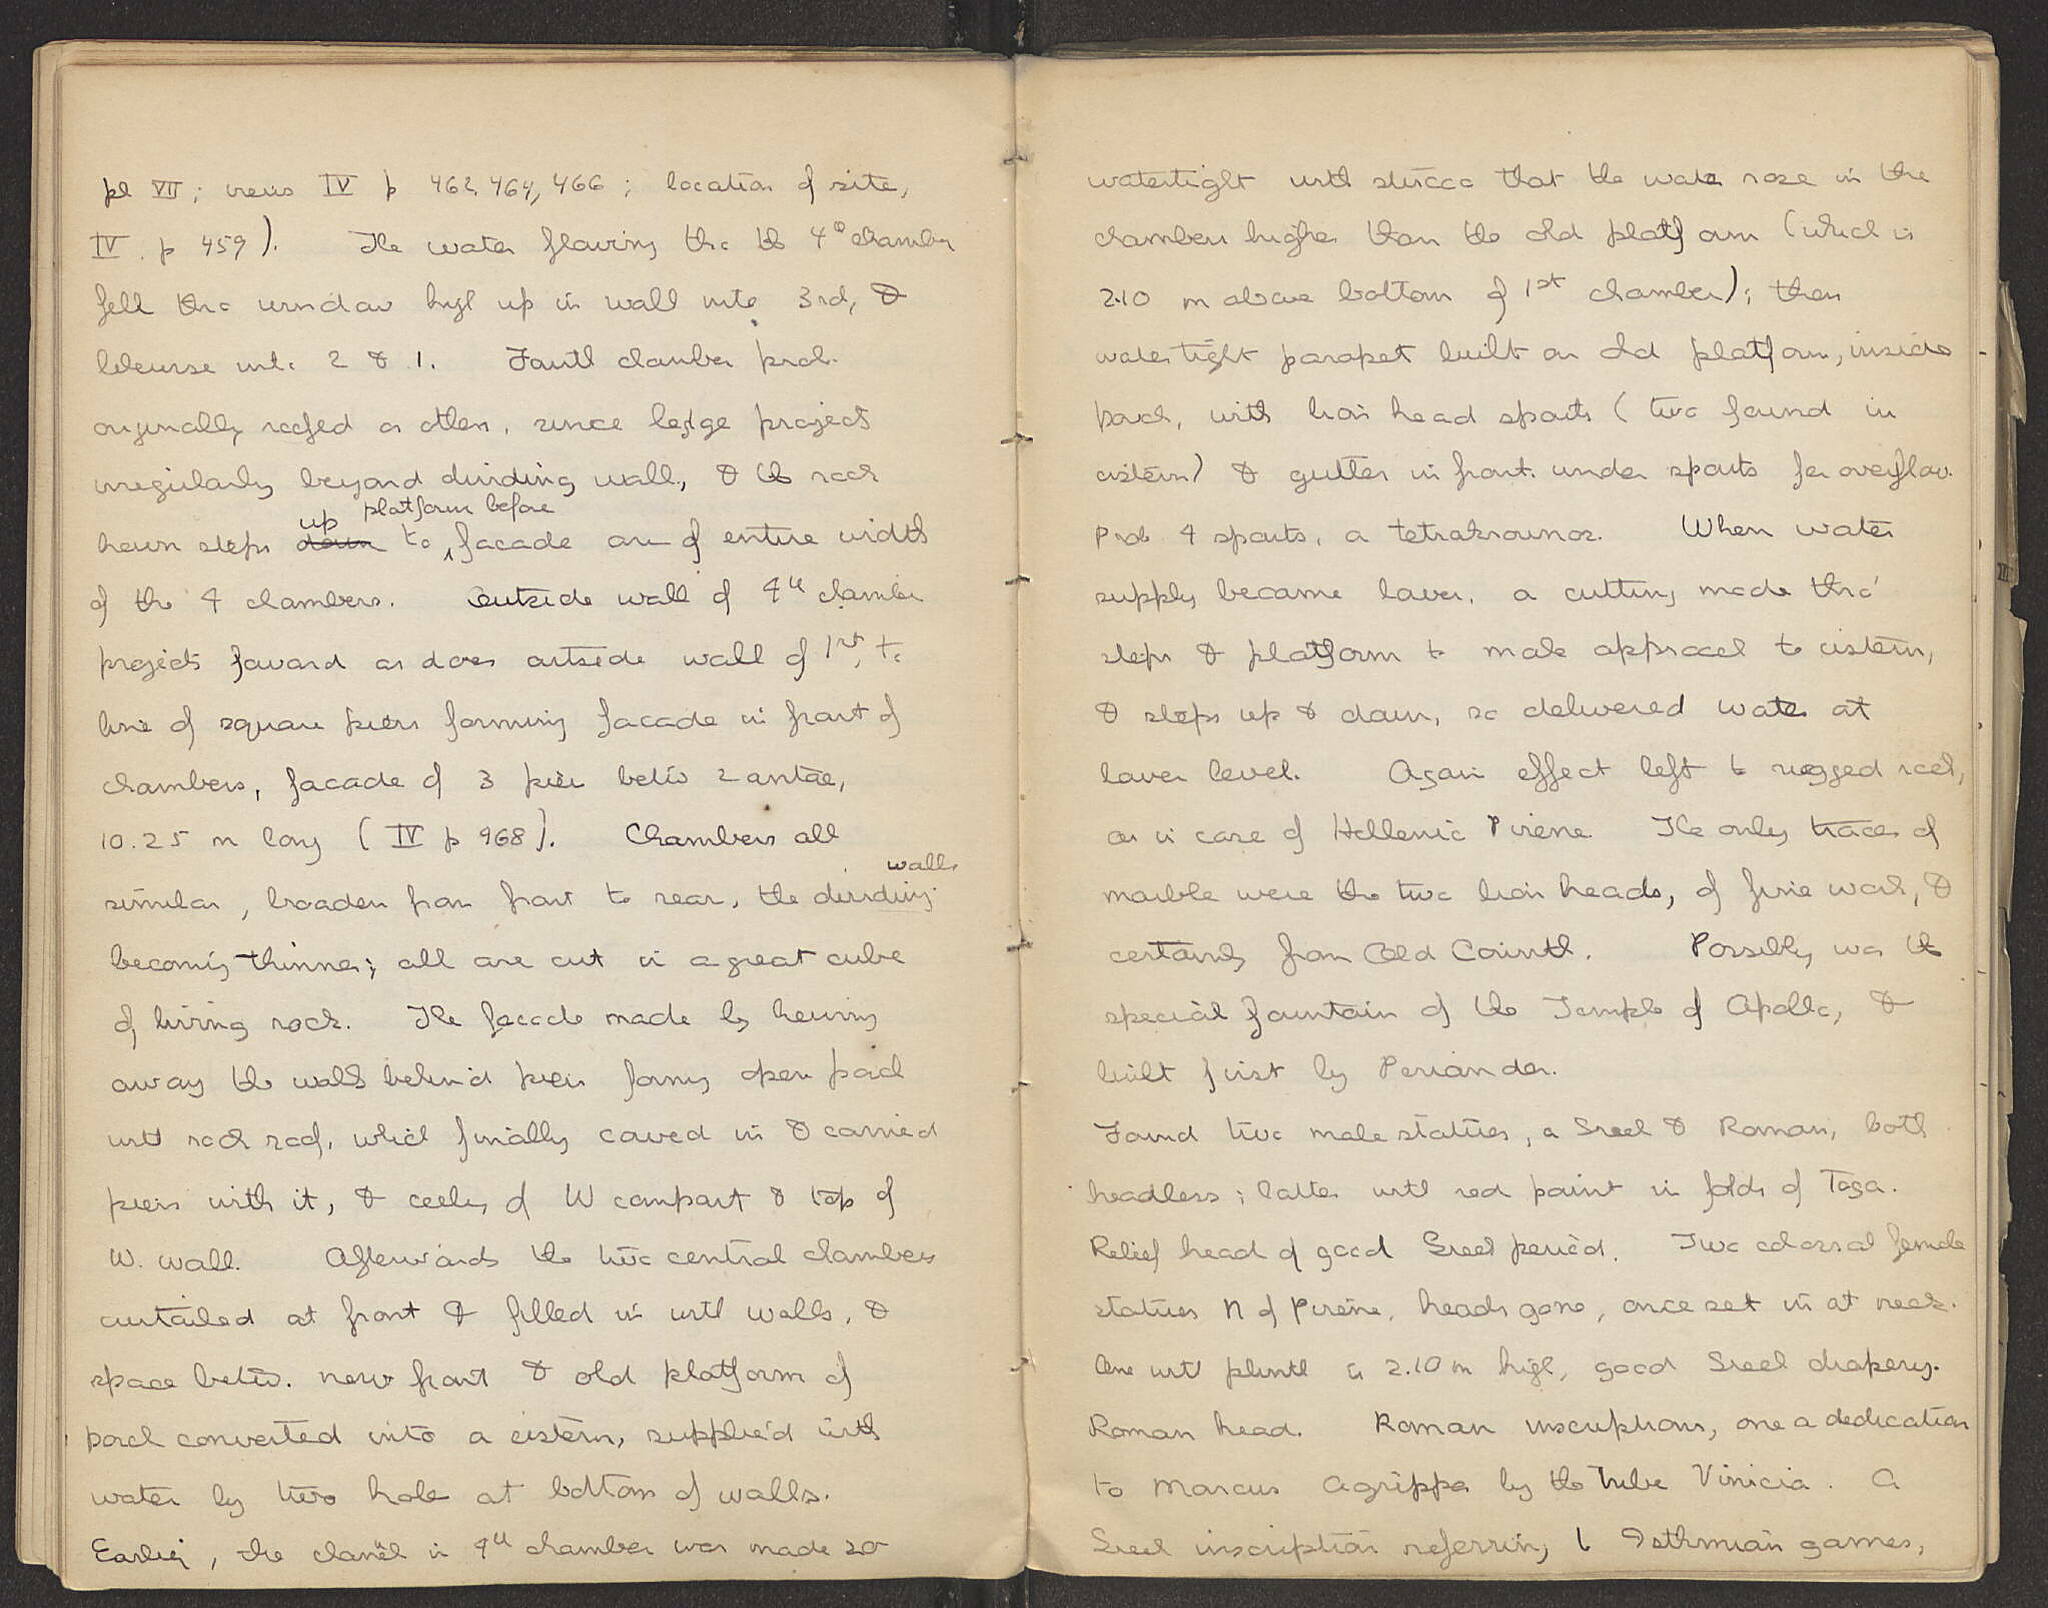 pl VII; views IV p 462, 464, 466; location of site,
IV. p 459). The water flowing thro the 4th chamber
fell thro window high up in wall into 3rd, &
likewise into 2 & 1. Fourth chamber prob.
originally roofed as others, since ledge projects
irregularly beyond dividing wall, & the rock
platform before
hewn steps down up to facade are of entire width
of the 4 chambers. Outside wall of 4th chamber
projects forward as does outside wall of 1st, to
line of square piers forming facade in front of
chambers, facade of 3 piers betw 2 antae,
10.25 m long (IV p 468). Chambers all
walls
similar, broaden from front to rear, the dividing
becoming thinner; all are cut in a great cube
of living rock. The facade made by hewing
away the walls behind piers forming open porch
with rock roof, which finally caved in & carried
piers with it, & ceiling of W compart & top of
W. wall. Afterwards the two central chambers
curtailed at front & filled in with walls, &
space betw. new front & old platform of
porch converted into a cistern, supplied with
water by two holes at bottom of walls.
Earlier, the channel in 4th chamber was made so
watertight with stucco that the water rose in the
chambers higher than the old platform (which is
2.10 m above bottom of 1st chamber); then
watertight parapet built on old platform, inside
porch, with lion head spouts (two found in
cistern) & gutter in front under spouts for overflow.
Prob 4 spouts, a tetrakrounos. When water
supply became lower, a cutting made thro'
steps & platform to make approach to cistern,
& steps up & down, so delivered water at
lower level. Again effect left to rugged rock,
as in case of Hellenic Pirene. The only traces of
marble were the two lion heads, of fine work, &
certainly from Old Corinth. Possibly was the
special fountain of the Temple of Apollo, &
built first by Periander.
Found two male statues, a Greek & Roman, both
headless; latter with red paint in folds of Toga.
Relief head of good Greek period. Two colossal female
statues N of Pirene, heads gone, once set in at neck.
One with plinth is 2.10 m high, good Greek drapery.
Roman head. Roman inscriptions, one a dedication
to Marcus Agrippa by the tribe Vinicia. A
Greek inscription referring to Isthmian games,